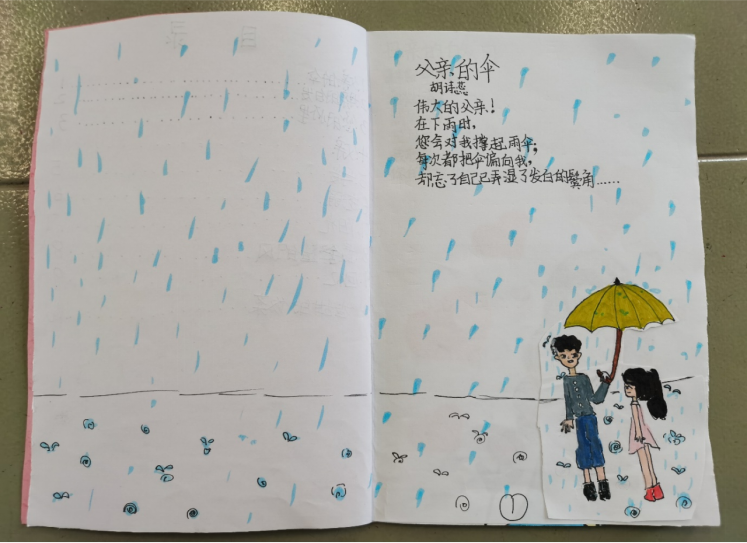 父亲的伞
胡诗燕
伟大的父亲！
在下雨时，
您会对我撑起雨伞；
每次都把伞偏向我，
却忘了自己已弄湿了发白的鬓角……
1